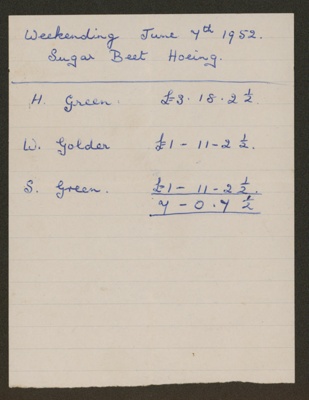 Weekending June 7th 1952.
Sugar Beet Hoeing.
H. Green. £3 · 18 · 2 ½.
W. Golder £1 - 11 - 2 ½.
S. Green. £1 - 11 - 2 ½.
7 - 0 · 7 ½